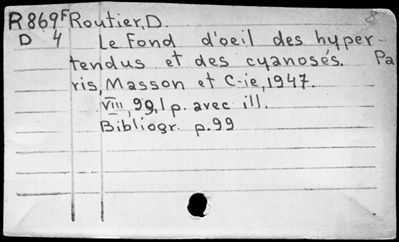 R869F Routier, D.
D 4 Le Fond d'oeil des hyper-
tendus et des cyanosés. Pa
ris, Masson et C-ie, 1947.
VIII, 99, 1 p. avec ill.
Bibliogr. p. 99